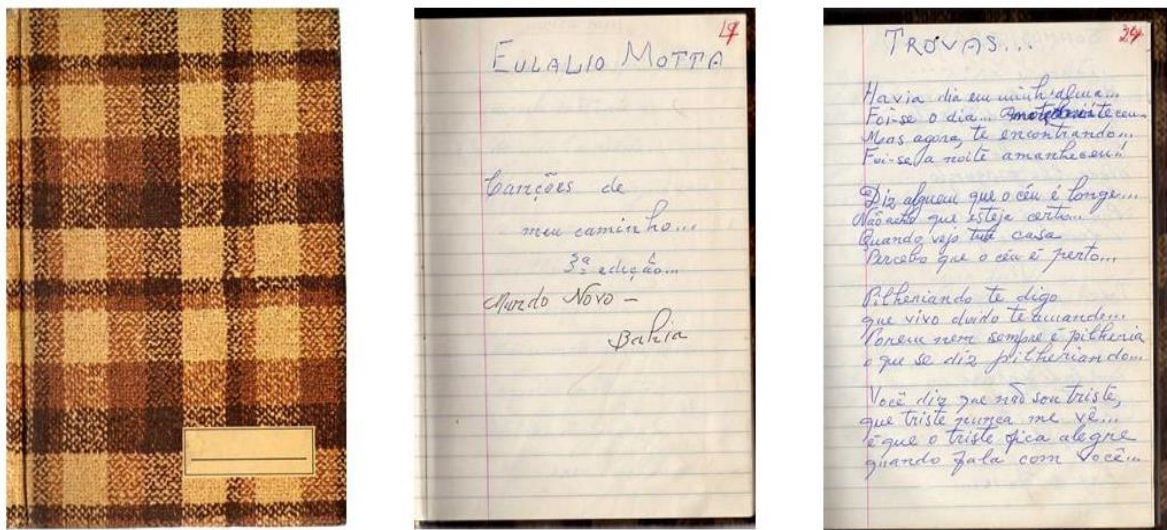 19
EULALIO MOTTA
Canções de
meu caminho...
3ª edição...
Mundo Novo -
Bahia
TROVAS...
Havia dia em minh'alma...
Foi-se o dia...
Mas agora, te encontrando...
Foi-se a noite amanheceu!!
Diz alguem que o céu é longe...
Não acho que esteja certo...
Quando vejo tua casa
Percebo que o céu é perto...
Pilheriando te digo
que vivo doido te amando...
Porem nem sempre é pilheria
o que se diz pilheriando...
Você diz que não sou triste,
que triste nunca me vê...
é que o triste fica alegre
quando fala com você...